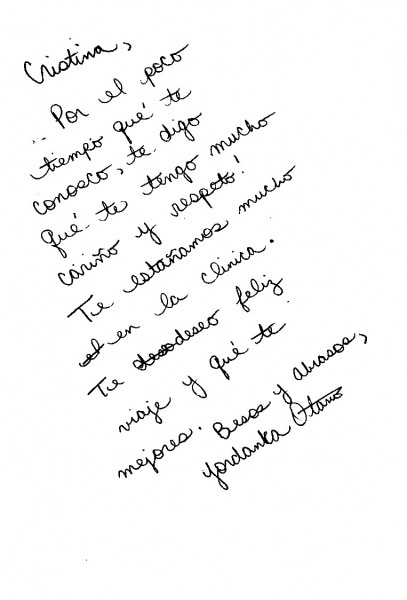 Cristina,
Por el poco
tiempo qué te
conosco, te digo
qué te tengo mucho
cariño y respeto!
Te estrañamos mucho
en la clinica.
Te deseo feliz
viaje y qué te
mejores. Besos y abrasos,
Yordanka Otano